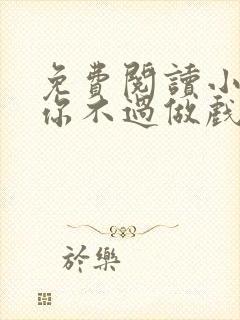 免費閱讀小
你不過做戲
於樂